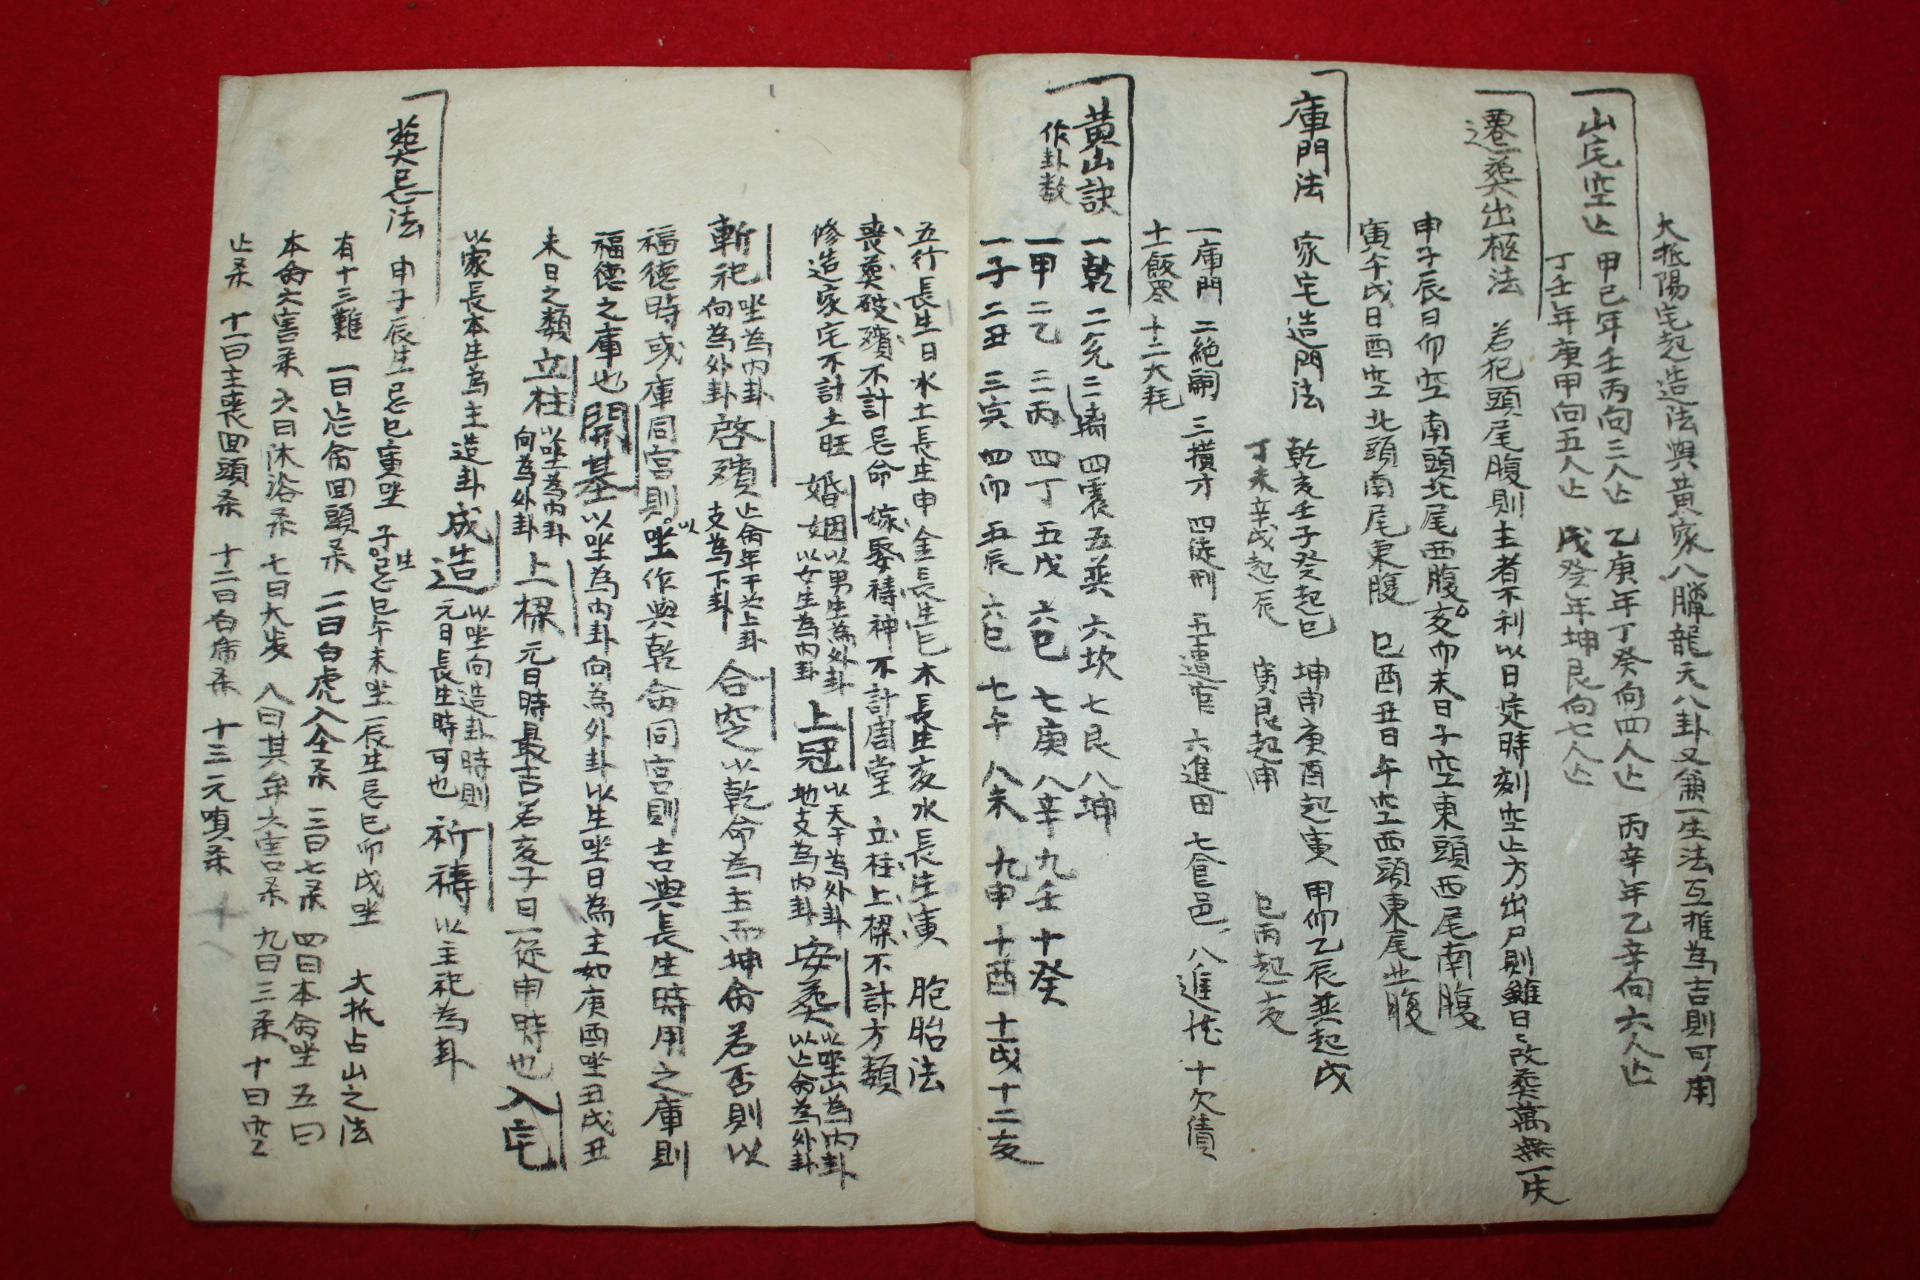 大抵陽宅起造法與黃家八臘龍天八卦又兼一生法互推為吉則可用
山宅空亡 甲己年壬丙向三人亡 乙庚年丁癸向四人亡 丙辛年乙辛向六人亡
丁壬年庚甲向五人亡 戊癸年坤艮向七人亡
遷葬出柩法 若犯頭尾腹則主者不利以日定時刻空亡方出尸則雖日日改葬萬無一失
申子辰日卯空南頭北尾西腹 亥卯未日子空東頭西尾南腹
寅午戌日酉空北頭南尾東腹 巳酉丑日午空西頭東尾北腹
庫門法 家宅造門法 乾亥壬子癸起巳 坤申庚酉起寅 甲卯乙辰巽起戌
丁未辛戌起辰 寅艮起申 巳丙起亥
一庫門 二絶嗣 三橫才 四徒刑 五遭官 六進田 七食邑 八進 十欠債
十一飯零 十二大耗
黃山訣 一乾 二兌 三离 四震 五巽 六坎 七艮 八坤
作卦数 一甲 二乙 三丙 四丁 五戊 六己 七庚 八辛 九壬 十癸
一子 二丑 三寅 四卯 五辰 六巳 七午 八未 九申 十酉 十一戌 十二亥
五行長生日水土長生申金長生巳木長生亥火長生寅 胞胎法
喪葬破殯不計忌命 嫁娶禱神不計周堂 立柱上樑不計方類
修造家宅不計土旺 婚姻 以男生為外卦 以女生為內卦 上冠 以天干為外卦 地支為內卦 安葬 以坐山為內卦 以亡命為外卦
斬祀 坐為內卦 向為外卦 啓殯 亡命年干為上卦 支為下卦 合空 以乾命為主而坤命若否則以
福德時或庫同宮則以坐作與乾命同宮則吉與長生時用之庫則
福德之庫也 開基 以坐為內卦向為外卦以生坐日為主如庚酉坐丑戌丑
未日之類 立柱 以坐為內卦 向為外卦 上樑 元日時最吉若亥子日一從申時也 入宅
以家長本生為主造卦 成造 以坐向造卦時則 元日長生時可也 祈禱 以主祀為卦
葬忌法 申子辰生忌巳寅坐 子生忌巳午未坐 辰生忌巳卯戌坐 大抵占山之法
有十三難 一曰忌命回頭杀 二曰白虎入全杀 三曰七杀 四曰本命坐 五曰
本命六害杀 六曰沐浴杀 七曰大 八曰其年六害杀 九曰三杀 十曰空
亡杀 十一曰主喪回頭杀 十二曰白席杀 十三元嗔杀